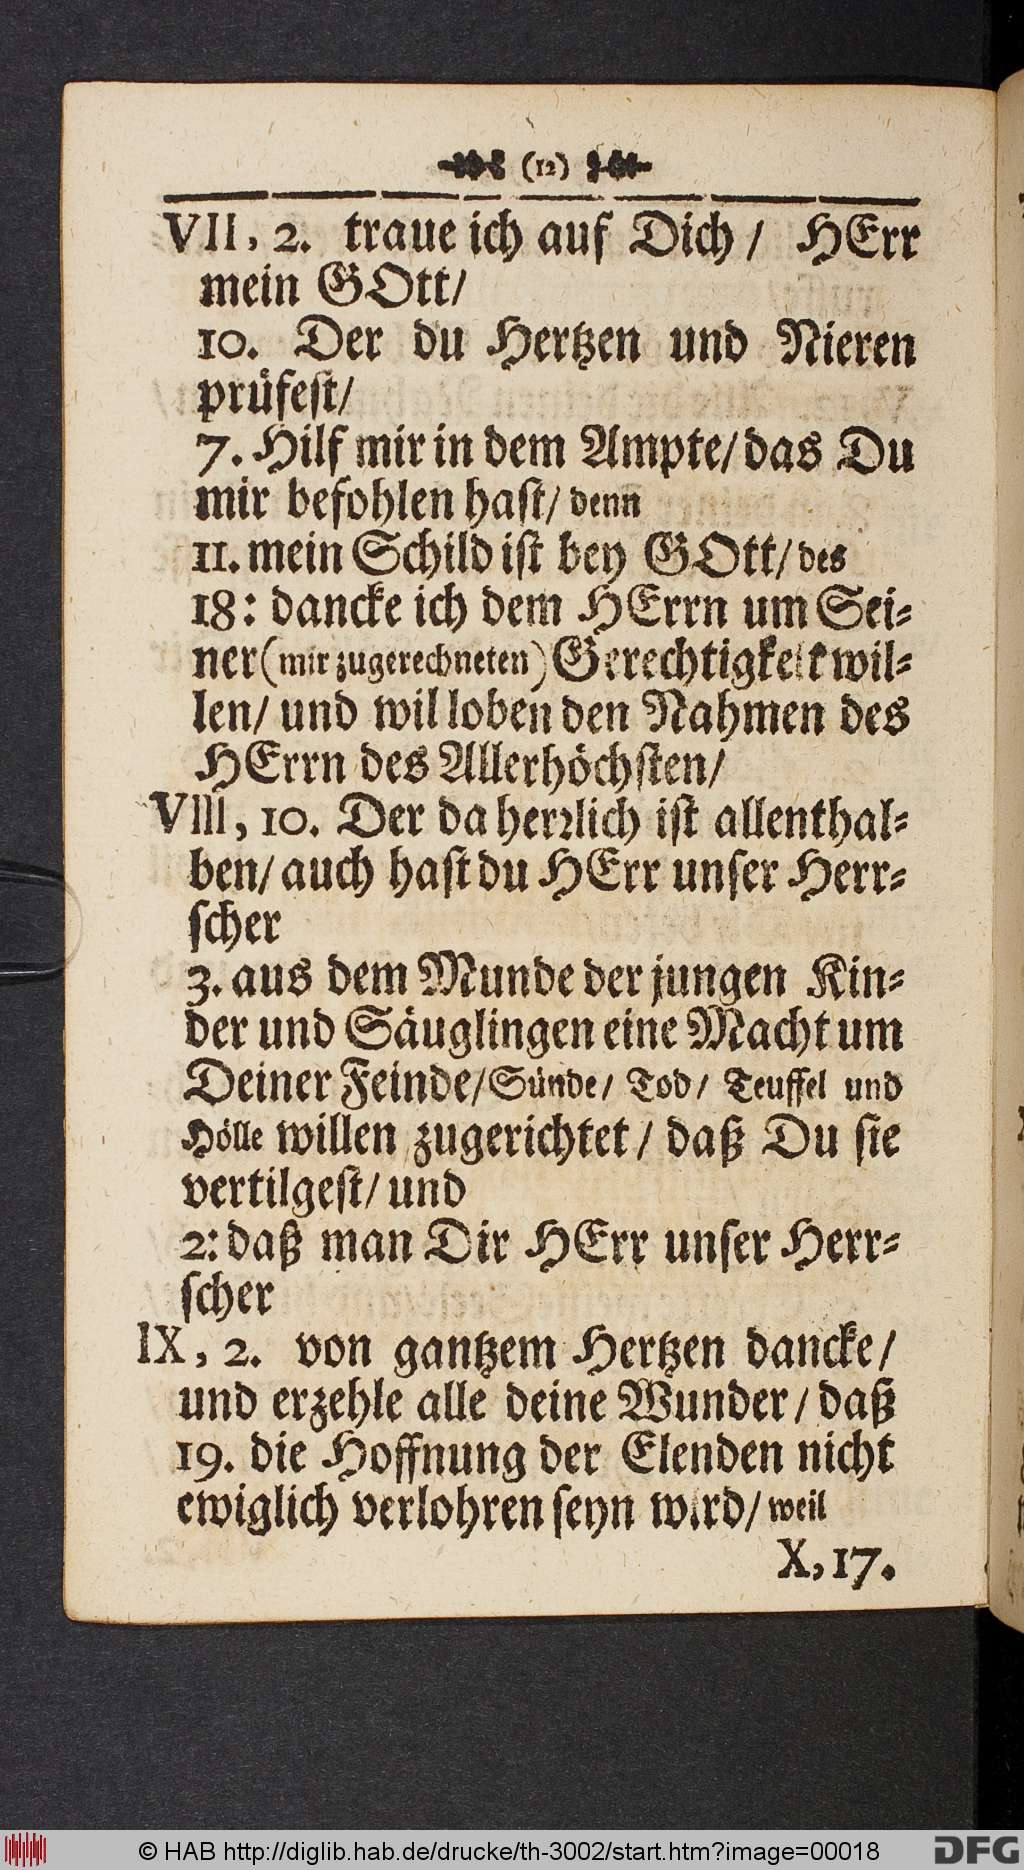 (12)
VII, 2. traue ich auf Dich / HErr
mein GOtt/
10. Der du Hertzen und Nieren
prüfest/
7. Hilf mir in dem Ampte/ das Du
mir befohlen hast/ denn
11. mein Schild ist bey GOtt/ des
18: dancke ich dem HErrn um Sei-
ner (mir zugerechneten) Gerechtigkeit wil-
len/ und wil loben den Nahmen des
HErrn des Allerhöchsten/
VIII, 10. Der da herrlich ist allenthal-
ben/ auch hast du HErr unser Herr-
scher
3. aus dem Munde der jungen Kin-
der und Säuglingen eine Macht um
Deiner Feinde/ Sünde/ Tod/ Teuffel und
Hölle willen zugerichtet / daß Du sie
vertilgest/ und
2: daß man Dir HErr unser Herr-
scher
IX, 2. von gantzem Hertzen dancke/
und erzehle alle deine Wunder / daß
19. die Hoffnung der Elenden nicht
ewiglich verlohren seyn wird/ weil
X, 17.
© HAB http://diglib.hab.de/drucke/th-3002/start.htm?image=00018
DFG